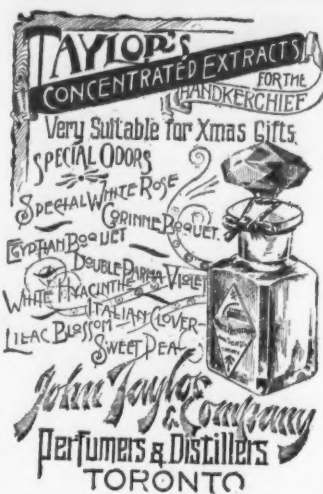 TAYLOR'S
CONCENTRATED EXTRACTS
FOR THE
HANDKERCHIEF
Very Suitable for Xmas Gifts.
SPECIAL ODORS
SPECIAL WHITE ROSE
CORINNE BOQUET.
EGYPTIAN BOQUET
DOUBLE PARMA VIOLET
WHITE HYACINTHE
ITALIAN CLOVER
LILAC BLOSSOM
SWEET PEA
John Taylor
& Company
Perfumers & Distillers
TORONTO